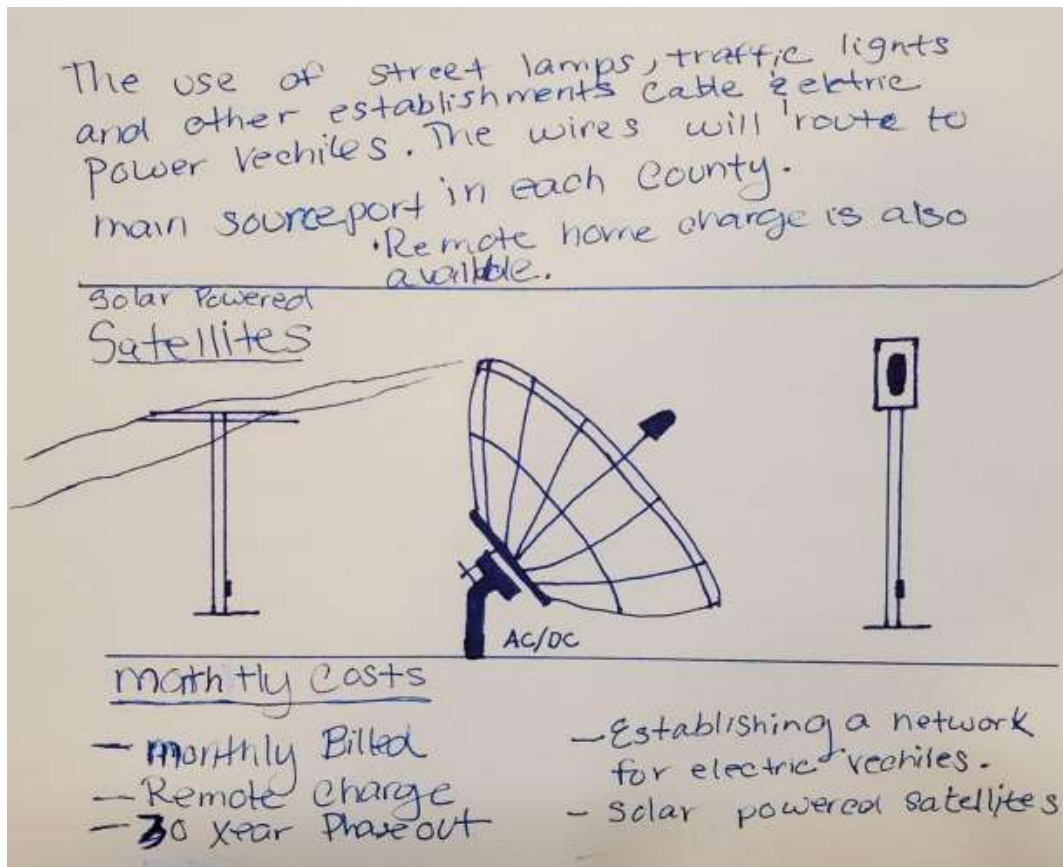 The use of street lamps, traffic lights
and other establishments cable & eletric
Power Vechiles. The wires will route to
main source port in each County.
• Remote home charge is also
available.
Solar Powered
Satellites
AC/DC
Monthtly Costs
- Monthly Billed
- Remote Charge
- 30 Year Phase out
- Establishing a network
for electric vechiles.
- Solar powered satellites